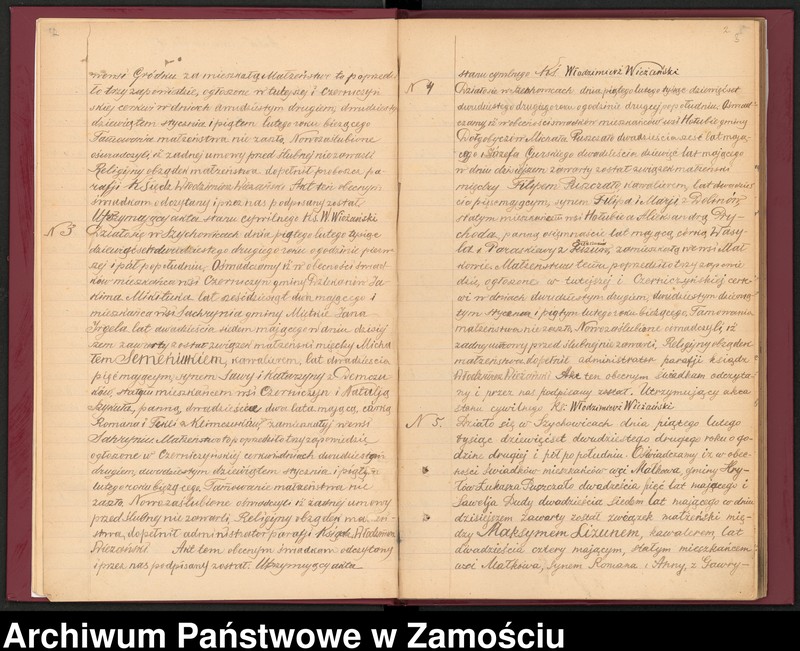 wensi Gródku zamieszkałą Małżeństwo to poprzedzi-
ło trzy zapowiedzie, ogłoszone w tutejszej i Czerniczyń-
skiej cerkwi w dniach dwudziestym drugim, dwudziestym
dziewiątem stycznia i piątem lutego roku bieżącego
Tamowania małżeństwa nie zaszło. Nowozaślubione
oświadczyli, iż żadny umowy przed ślubnej nie zawarli
Religijny obrządek małżeństwa dopełnił proboszcz pa-
rafji Ksiądz Włodzimierz Wieżański Akt ten obecnym
świadkom odczytany i przez nas podpisany został
Utrzymujący akta stanu cywilnego Ks. W. Wieżański
N 3
Działo się w Szychowicach dnia piątego lutego tysiąc
dziewięćset dwudziestego drugiego roku o godzinie pierw-
szej i pół popołudniu. Oświadczamy iż w obecności świad-
ków mieszkańca wsi Czerniczyn gminy Dziekanów Ja-
kima lat sześćdziesiąt dwa mającego i
mieszkańca wsi Suchrynia gminy Miętkie Jana
lat dwadzieścia siedem mającego w dniu dzisiej
szem zawarty został związek małżeński między Micha
łem Semeniukiem, kawalerem, lat dwadzieścia
pięć mającym, synem Sawy i Katarzyny z Demczu
ków, stałym mieszkańcem wsi Czerniczyn i Natalją
panną, dwadzieścia dwa lata mającą, córką
Romana i Tekli z Klimczuków zamieszkałej w wsi
Sahryniu Małżeństwo to poprzedziło trzy zapowiedzie
ogłoszone w Czerniczyńskiej cerkwi w dniach dwudziestym
drugiem, dwudziestym dziewiątem stycznia i piątym
lutego roku bieżącego. Tamowanie małżeństwa nie
zaszło. Nowozaślubione oświadczyli iż żadnej umowy
przed ślubnej nie zawarli. Religijny obrządek małżeń-
stwa, dopełnił administrator parafji Ksiądz Włodzimierz
Wieżański Akt ten obecnym świadkom odczytany
i przez nas podpisany został. Utrzymujący akta
stanu cywilnego Ks. Włodzimierz Wieżański
N 4
Działo się w Szychowicach dnia piątego lutego tysiąc dziewięćset
dwudziestego drugiego roku o godzinie drugiej popołudniu. Oświad-
czamy iż w obecności świadków mieszkańców wsi Hołubie gminy
Dołhobyczów Michała Puszczało dwadzieścia sześć lat mają-
cego i Józefa dwadzieścia dziewięć lat mającego
w dniu dzisiejszem zawarty został związek małżeński
między Filipem Puszczało kawalerem, lat dwadzieś
cia pięć mającym, synem Filipa i Marji z
stałym mieszkańcem wsi Hołubie a Aleksandrą Pry-
choda, panną osiemnaście lat mającą córką Wasy-
la i Paraskiewy z zamieszkałą w wsi Mał
kowie. Małżeństwu temu poprzedziło trzy zapowie
dzie, ogłoszone w tutejszej i Czerniczyńskiej cerk-
wi w dniach dwudziestym drugiem, dwudziestym dziewią-
tym stycznia i piątym lutego roku bieżącego. Tamowania
małżeństwa nie zaszło. Nowozaślubione oświadczyli, iż
żadny umowy przed ślubnej nie zawarli. Religijny obrządek
małżeństwa dopełnił administrator parafji ksiądz
Włodzimierz Wieżański Akt ten obecnym świadkom odczyta-
ny i przez nas podpisany został. Utrzymujący akta
stanu cywilnego Ks. Włodzimierz Wieżański
N 5.
Działo się w Szychowicach dnia piątego lutego
tysiąc dziewięćset dwadziestego drugego roku o go-
dzine drugiej i pół po południu. Oświadczamy iż w obec-
ności świadków mieszkańców wsi Małkowa, gminy Kry-
łów Łukasza Puszczało dwadzieścia pięć lat mającego i
Sawelja Dudy dwadzieścia siedem lat mającego w dniu
dzisiejszem zawarty został związek małżeński mię-
dzy Maksymem Lizunem, kawalerem, lat
dwadzieścia cztery mającym, stałym mieszkańcem
wsi Małkowa, synem Romana i Anny, z Gawry-
Archiwum Państwowe w Zamościu